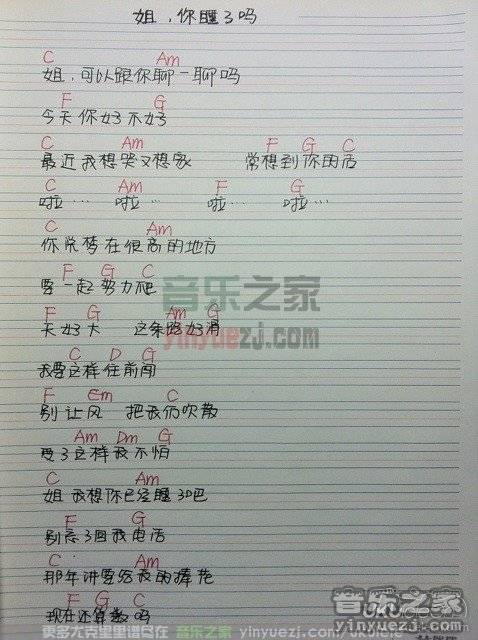 姐，你睡了吗
C Am
姐，可以跟你聊一聊吗
F G
今天你好不好
C Am F G C
最近我想哭又想家 常想到你的话
C Am F G
啦… 啦… 啦… 啦…
C Am
你说梦在很高的地方
F G C
要一起努力爬
F G Am G
天好大 这条路好滑
C D G
我要这样往前闯
F Em C
别让风 把我们吹散
Am Dm G
要了这样我不怕
C Am
姐 我想你已经睡了吧
F G
别忘了回我电话
C Am
那年讲要给我的捧花
F G C
现在还算数吗
音乐之家
yinyuezj.com
更多尤克里里谱尽在 音乐之家 yinyuezj.com
音乐之家
www.yinyuezj.com